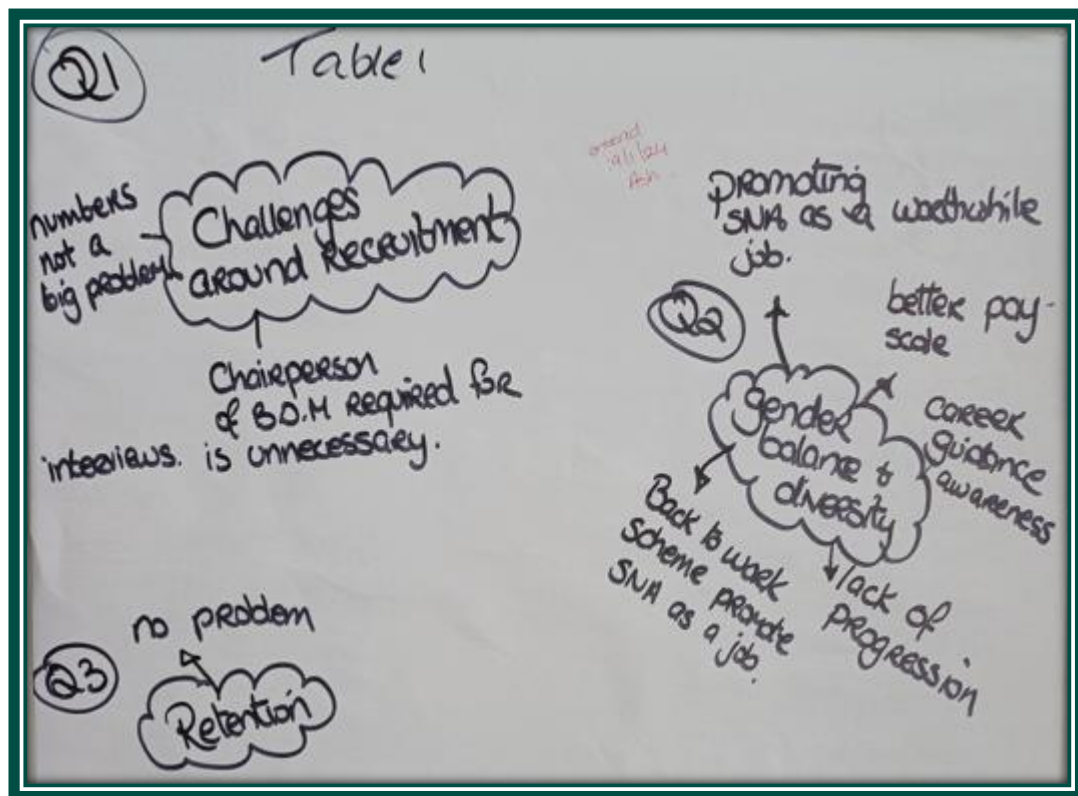 Q1
Table 1
numbers
not a
big problem
Challenges
around Recruitment
Chairperson
of B.O.M required for
interviews. is unnecessary.
9/1/24
promoting
SNA as a worthwhile
job.
Q2
better pay-
scale
gender
balance &
diversity
career
guidance
awareness
Back to work
scheme promote
SNA as a job.
lack of
progression
Q3
no problem
Retention